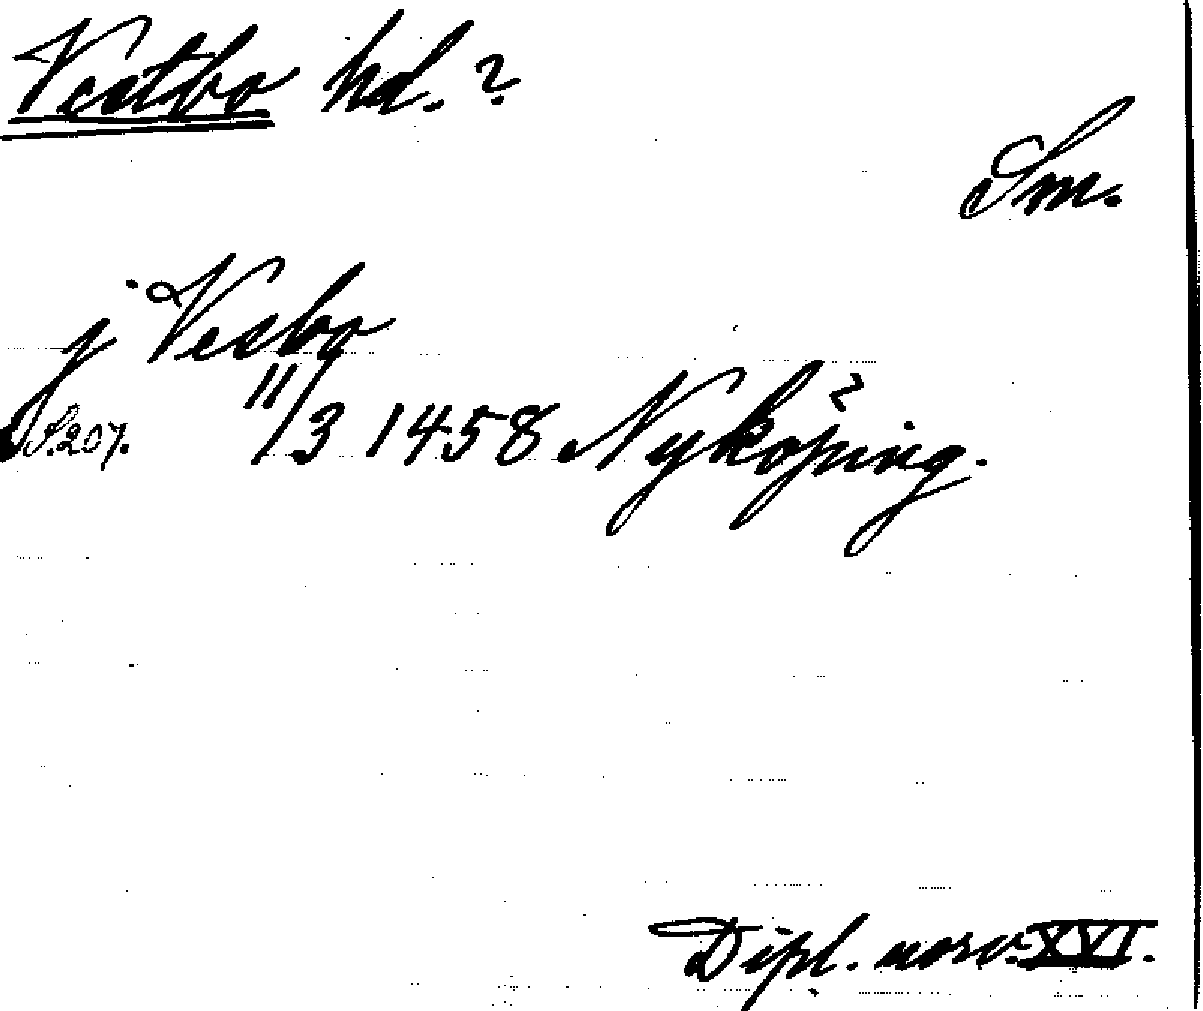 Vestbo hd.?
Sm.
j Vesbo
S.207. 11/3 1458 Nyköping.
Dipl. norv. XVI.